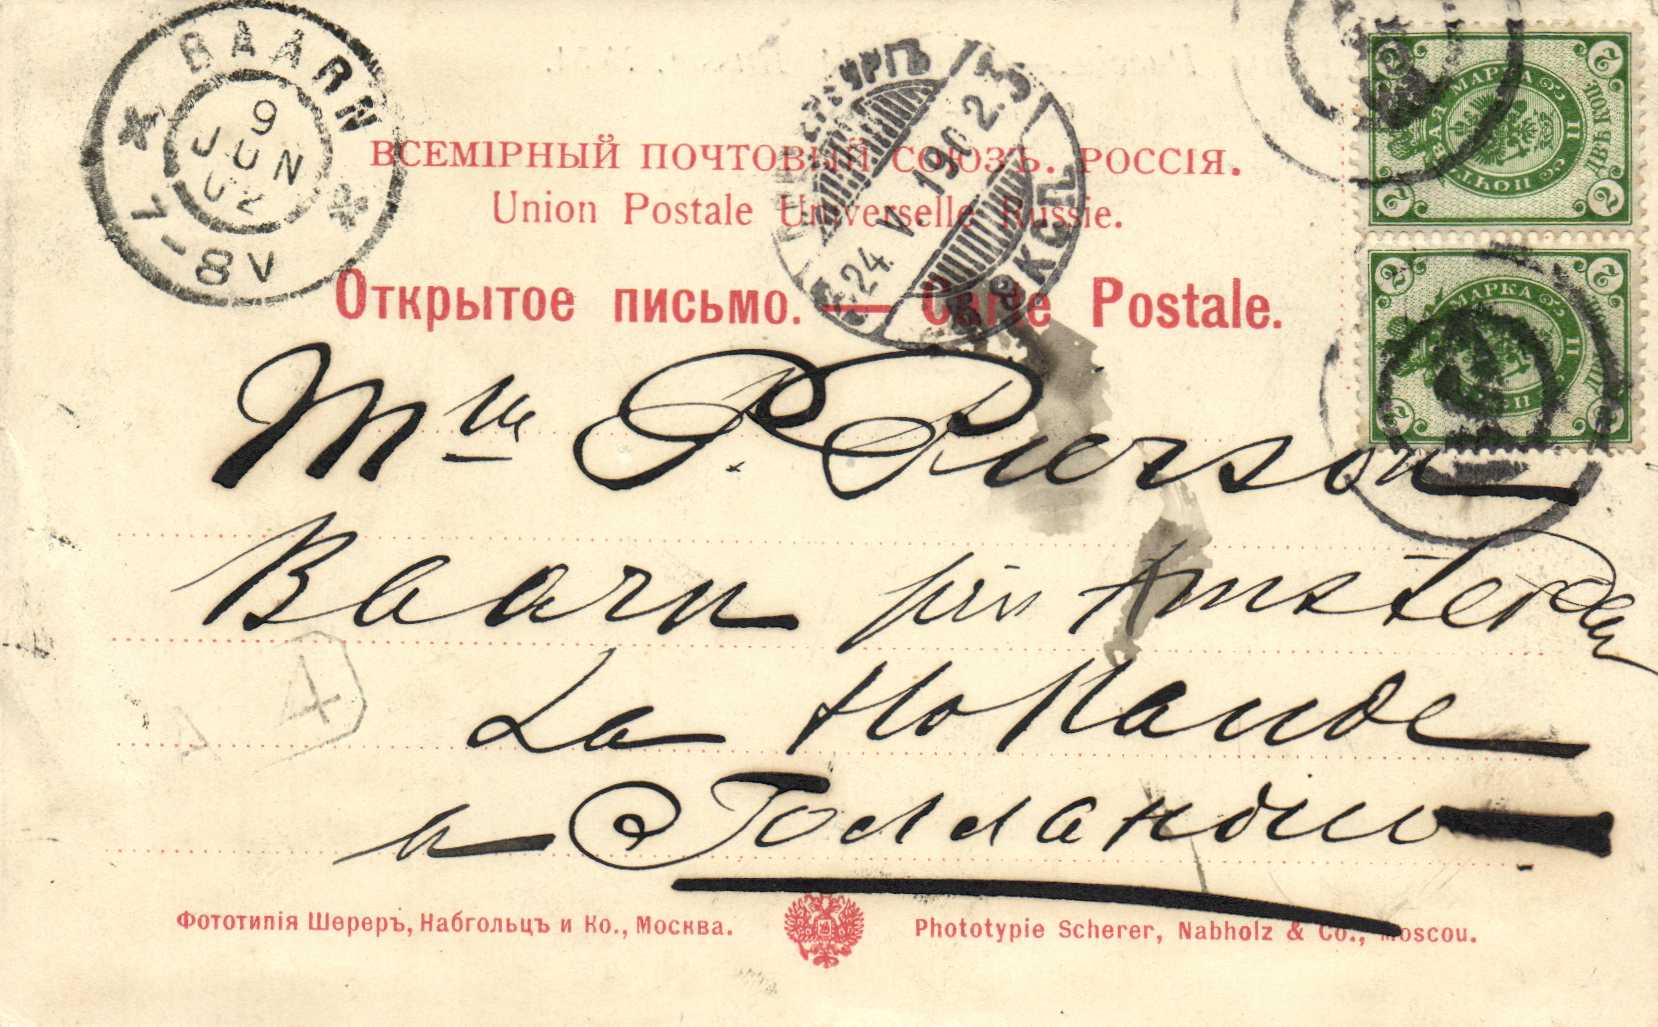 BAARN
9
JUN
02
7-8V
24. V. 1902.
ВСЕМІРНЫЙ ПОЧТОВЫЙ СОЮЗЪ. РОССІЯ.
Union Postale Universelle Russie.
Открытое письмо. — Carte Postale.
МАРКА
ДВѢ КОП.
2
МАРКА
2
Mlle P. Pierson
Baarn près Amsterdam
La Hollande
Голландию
4
Фототипія Шереръ, Набгольцъ и Ко., Москва.
Phototypie Scherer, Nabholz & Co., Moscou.